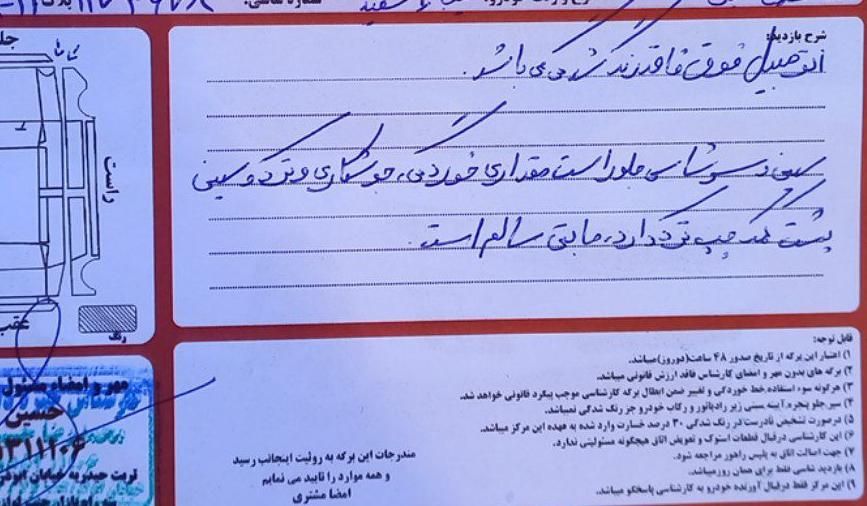 شرح بازدید:
اتومبیل فوق فاقد رنگ شدگی می باشد.
سینی و سرشاسی جلو راست مقداری خوردگی، جوشکاری و ترک و سینی
پشت کمک چپ ترک دارد، مابقی سالم است.
راست
رنگ
مهر و امضاء مسئول
حسین
تربت حیدریه خیابان ابوذر
مندرجات این برگه به روئیت اینجانب رسید
و همه موارد را تایید می نمایم
امضا مشتری
قابل توجه:
۱) اعتبار این برگه از تاریخ صدور ۴۸ ساعت(دوروز)میباشد.
۲) برگه های بدون مهر و امضای کارشناس فاقد ارزش قانونی میباشد.
۳) هرگونه سوء استفاده،خط خوردگی و تغییر ضمن ابطال برگه کارشناسی موجب پیگرد قانونی خواهد شد.
۴) سپر،جلو پنجره،آیینه،سینی زیر رادیاتور و رکاب خودرو جزء رنگ شدگی نمیباشد.
۵) درصورت تشخیص نادرست در رنگ شدگی ۳۰ درصد خسارت وارد شده به عهده این مرکز میباشد.
۶) این کارشناسی درقبال قطعات استوک و تعویض اتاق هیچگونه مسئولیتی ندارد.
۷) جهت اصالت اتاق به پلیس راهور مراجعه شود.
۸) بازدید شاسی فقط برای همان روزمیباشد.
۹) این مرکز فقط درقبال آورنده خودرو به کارشناسی پاسخگو میباشد.